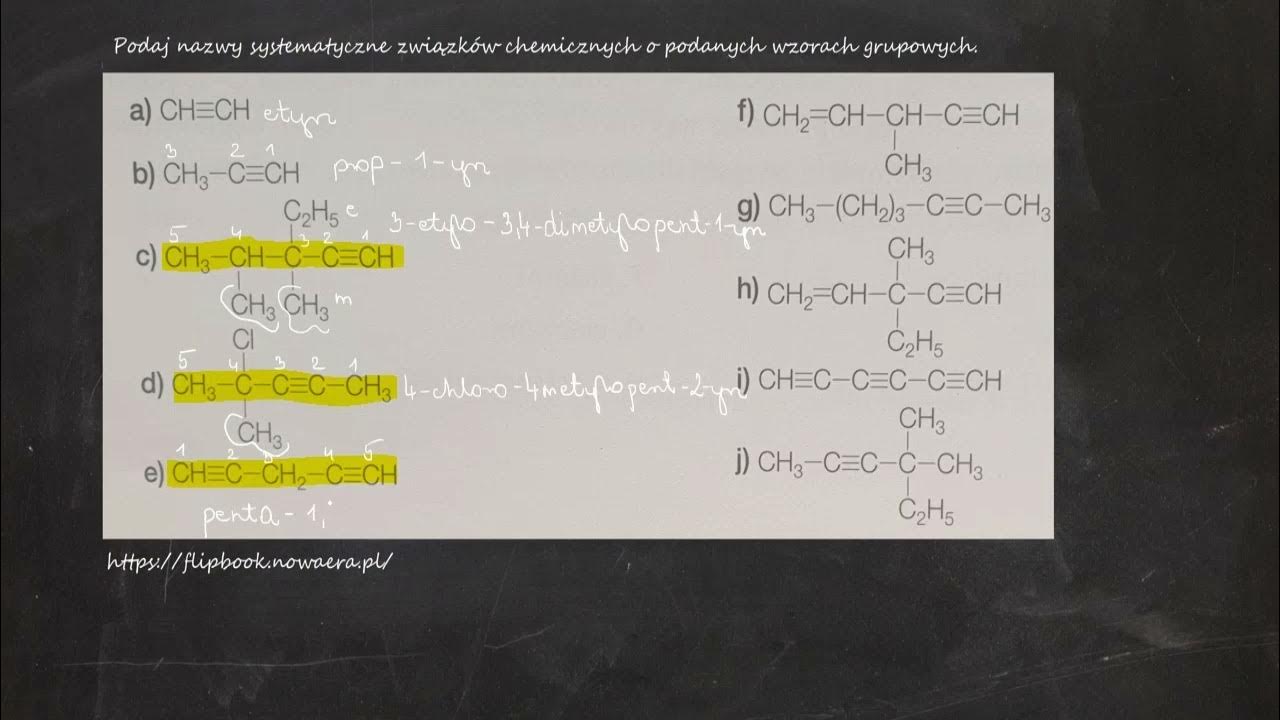 Podaj nazwy systematyczne związków chemicznych o podanych wzorach grupowych.
a) CH≡CH etyn
3 2 1
b) CH₃–C≡CH prop-1-yn
C₂H₅ e
3-etylo-3,4-dimetylopent-1-yn
5 4 3 2 1
c) CH₃–CH–C–C≡CH
CH₃ CH₃ m
Cl
5 4 3 2 1
d) CH₃–C–C≡C–CH₃ 4-chloro-4metylopent-2-yn
CH₃
1 2 4 5
e) CH≡C–CH₂–C≡CH
penta-1,
f) CH₂=CH–CH–C≡CH
CH₃
g) CH₃–(CH₂)₃–C≡C–CH₃
CH₃
h) CH₂=CH–C–C≡CH
C₂H₅
i) CH≡C–C≡C–C≡CH
CH₃
j) CH₃–C≡C–C–CH₃
C₂H₅
https://flipbook.nowaera.pl/